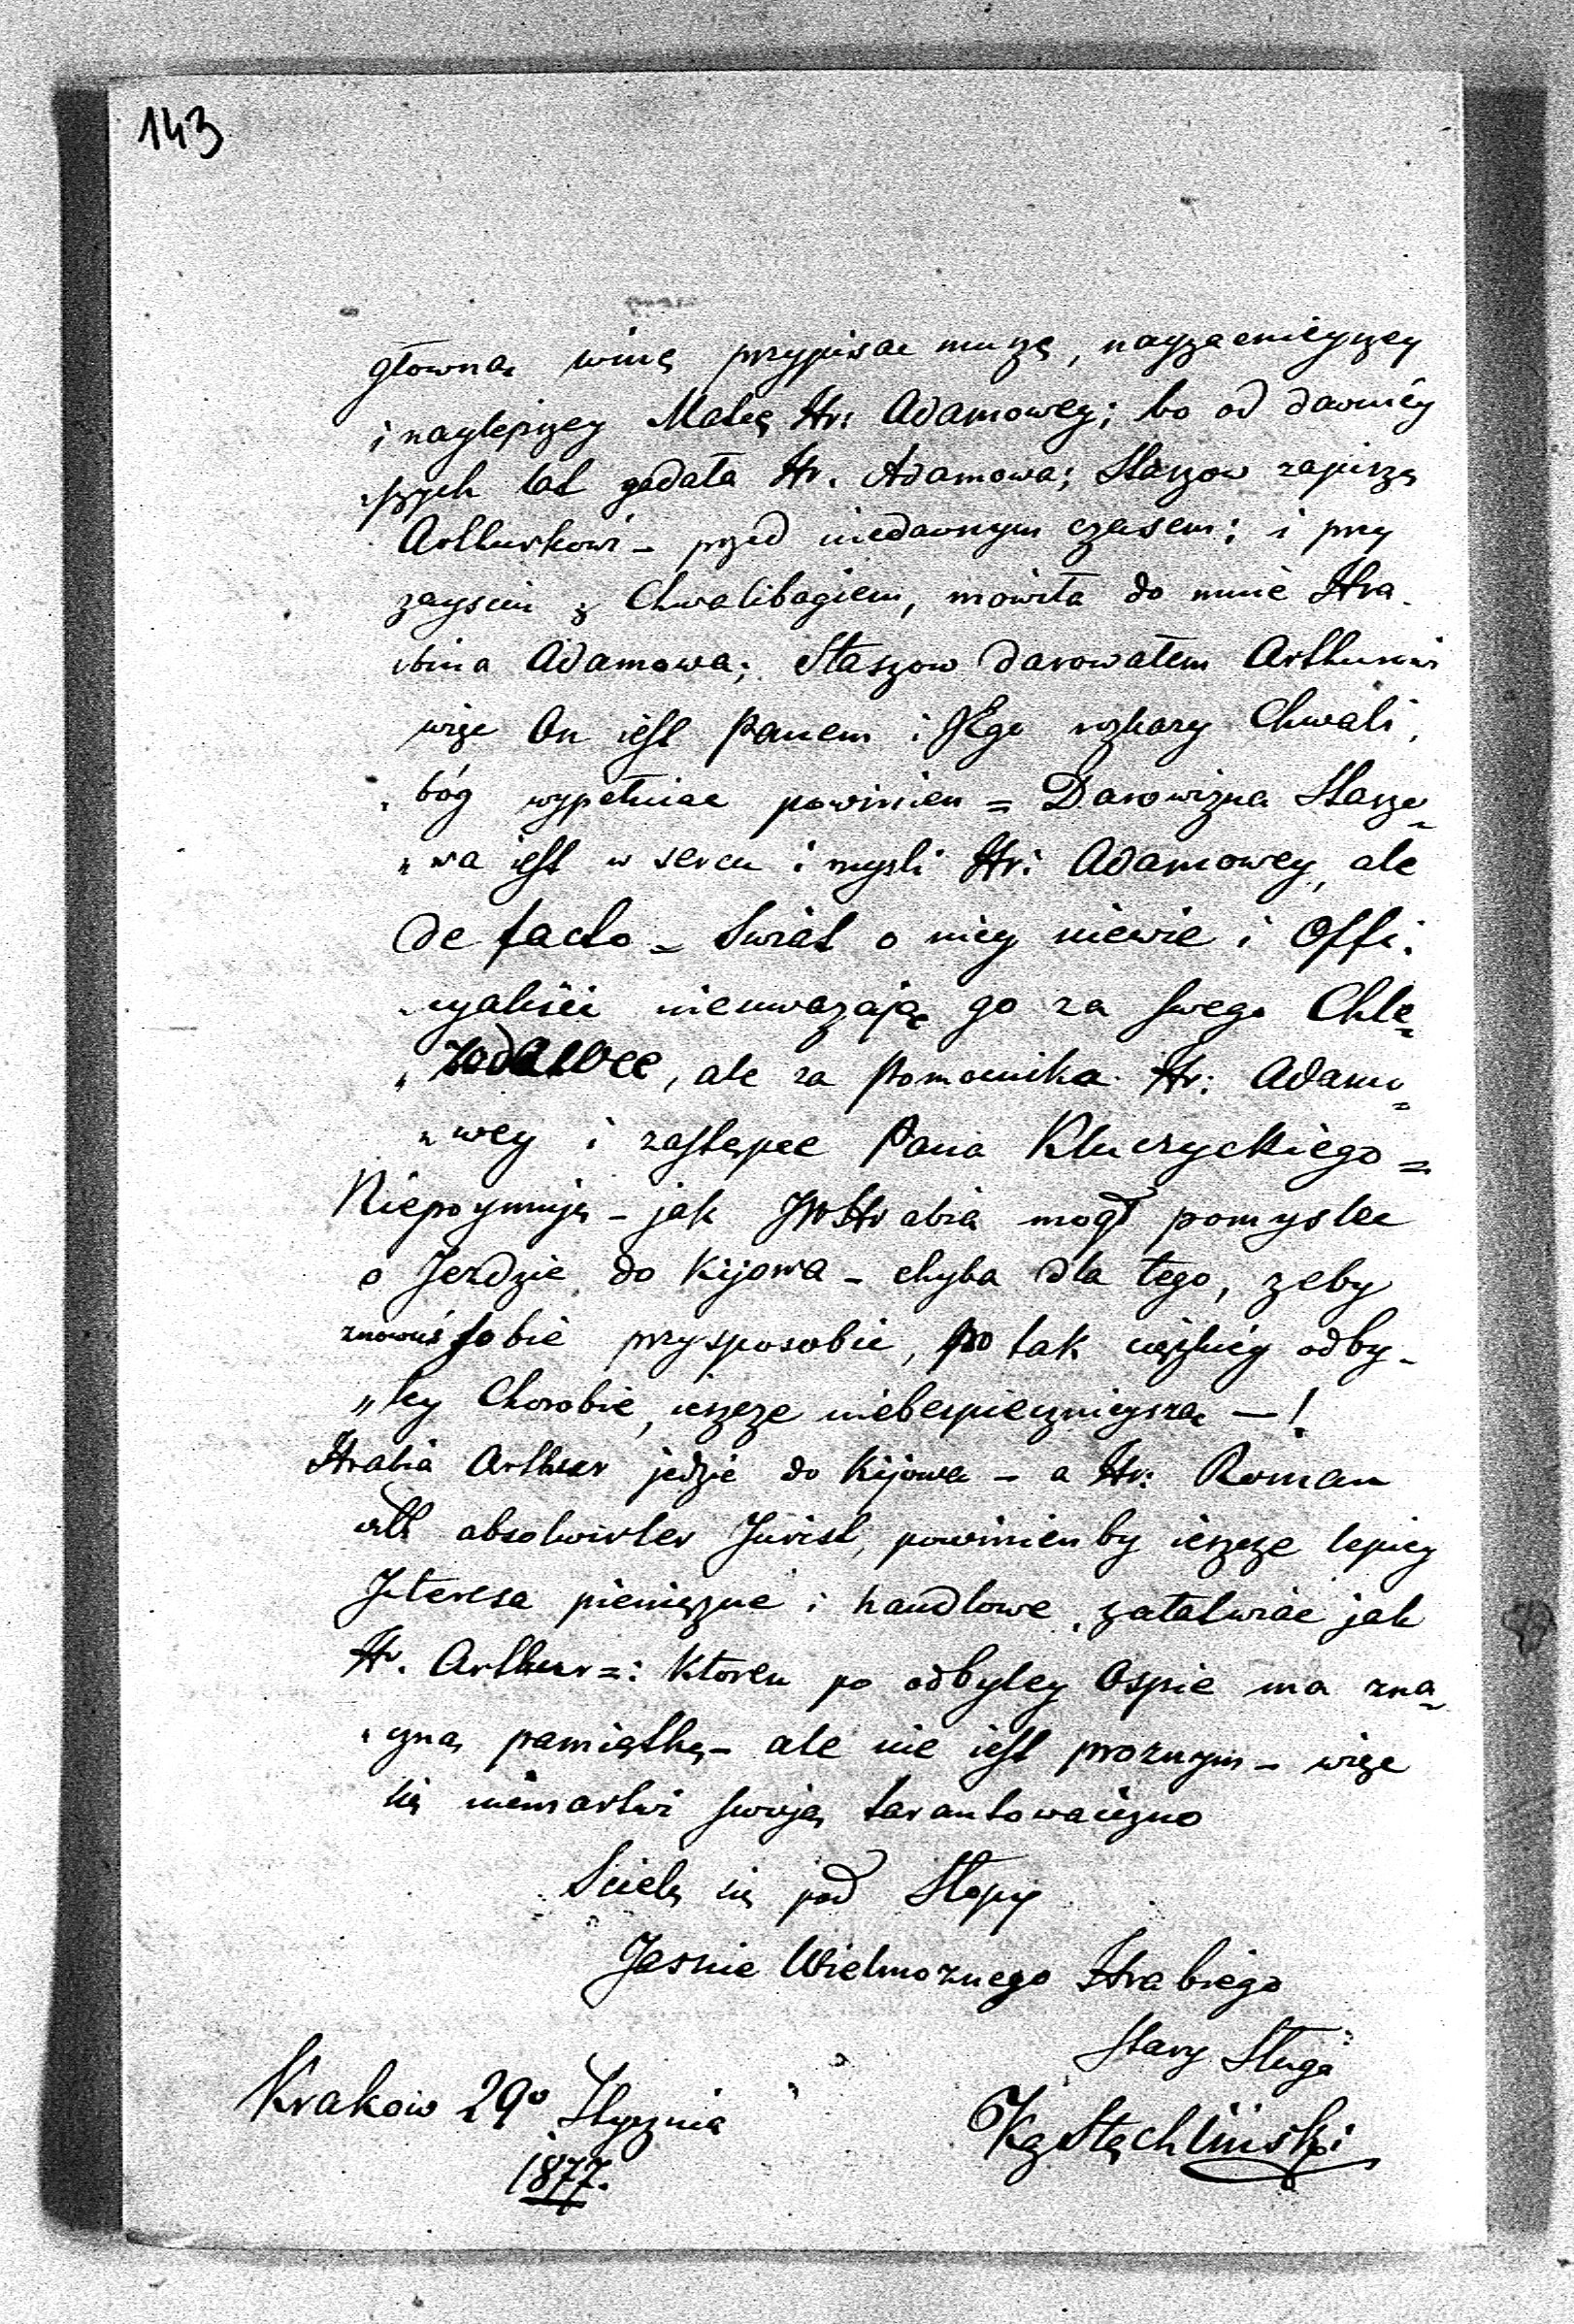 143
głowną winę przypisac muszę, nayzacnieyszey
i naylepszey Matce Hr: Adamowey; bo od dawniey
„szych lat gadała Hr. Adamowa; Staszow zapiszę
Arthurkowi – przed niedawnym czasem; i przy
zaysciu z Chwalibogiem, mowiła do mnie Hra„
„bina Adamowa; Staszow darowałem Arthurowi
więc On iest Panem i Jego rozkazy Chwali„
„bóg wypełniac powinien = Darowizna Staszo„
„wa iest w sercu i mysli Hr: Adamowey, ale
de facto = Swiat o niey niewie i Offi„
„cyalisci nieuwazają go za swego Chle„
„bodawce, ale za Pomocnika Hr: Adamo„
„wey i zastępce Pana Kluczyckiego =
Niepoymuję – jak JW Hrabia mogł pomyslec
o Jezdzie do Kijowa – chyba dla tego, zeby
znowuś sobie przysposobic, po tak cięzkiey odby„
„tey Chorobie, ieszcze niebespiecznieyszą – !
Hrabia Arthur jedzie do Kijowa – a Hr: Roman
als absolvirter Jurist, powinien by ieszcze lepiey
Jnteresa pienięzne i handlowe załatwiac jak
Hr. Arthur =: Ktoren po odbytey Ospie ma zna„
„czną pamiątkę – ale nie iest proznym – więc
się niemartwi swoją tarantowacizno
Scielę się pod Stopy
Jasnie Wielmoznego Hrabiego
Stary Sługa
Krakow 29º Stycznia
1877.
Kg Stęchliński